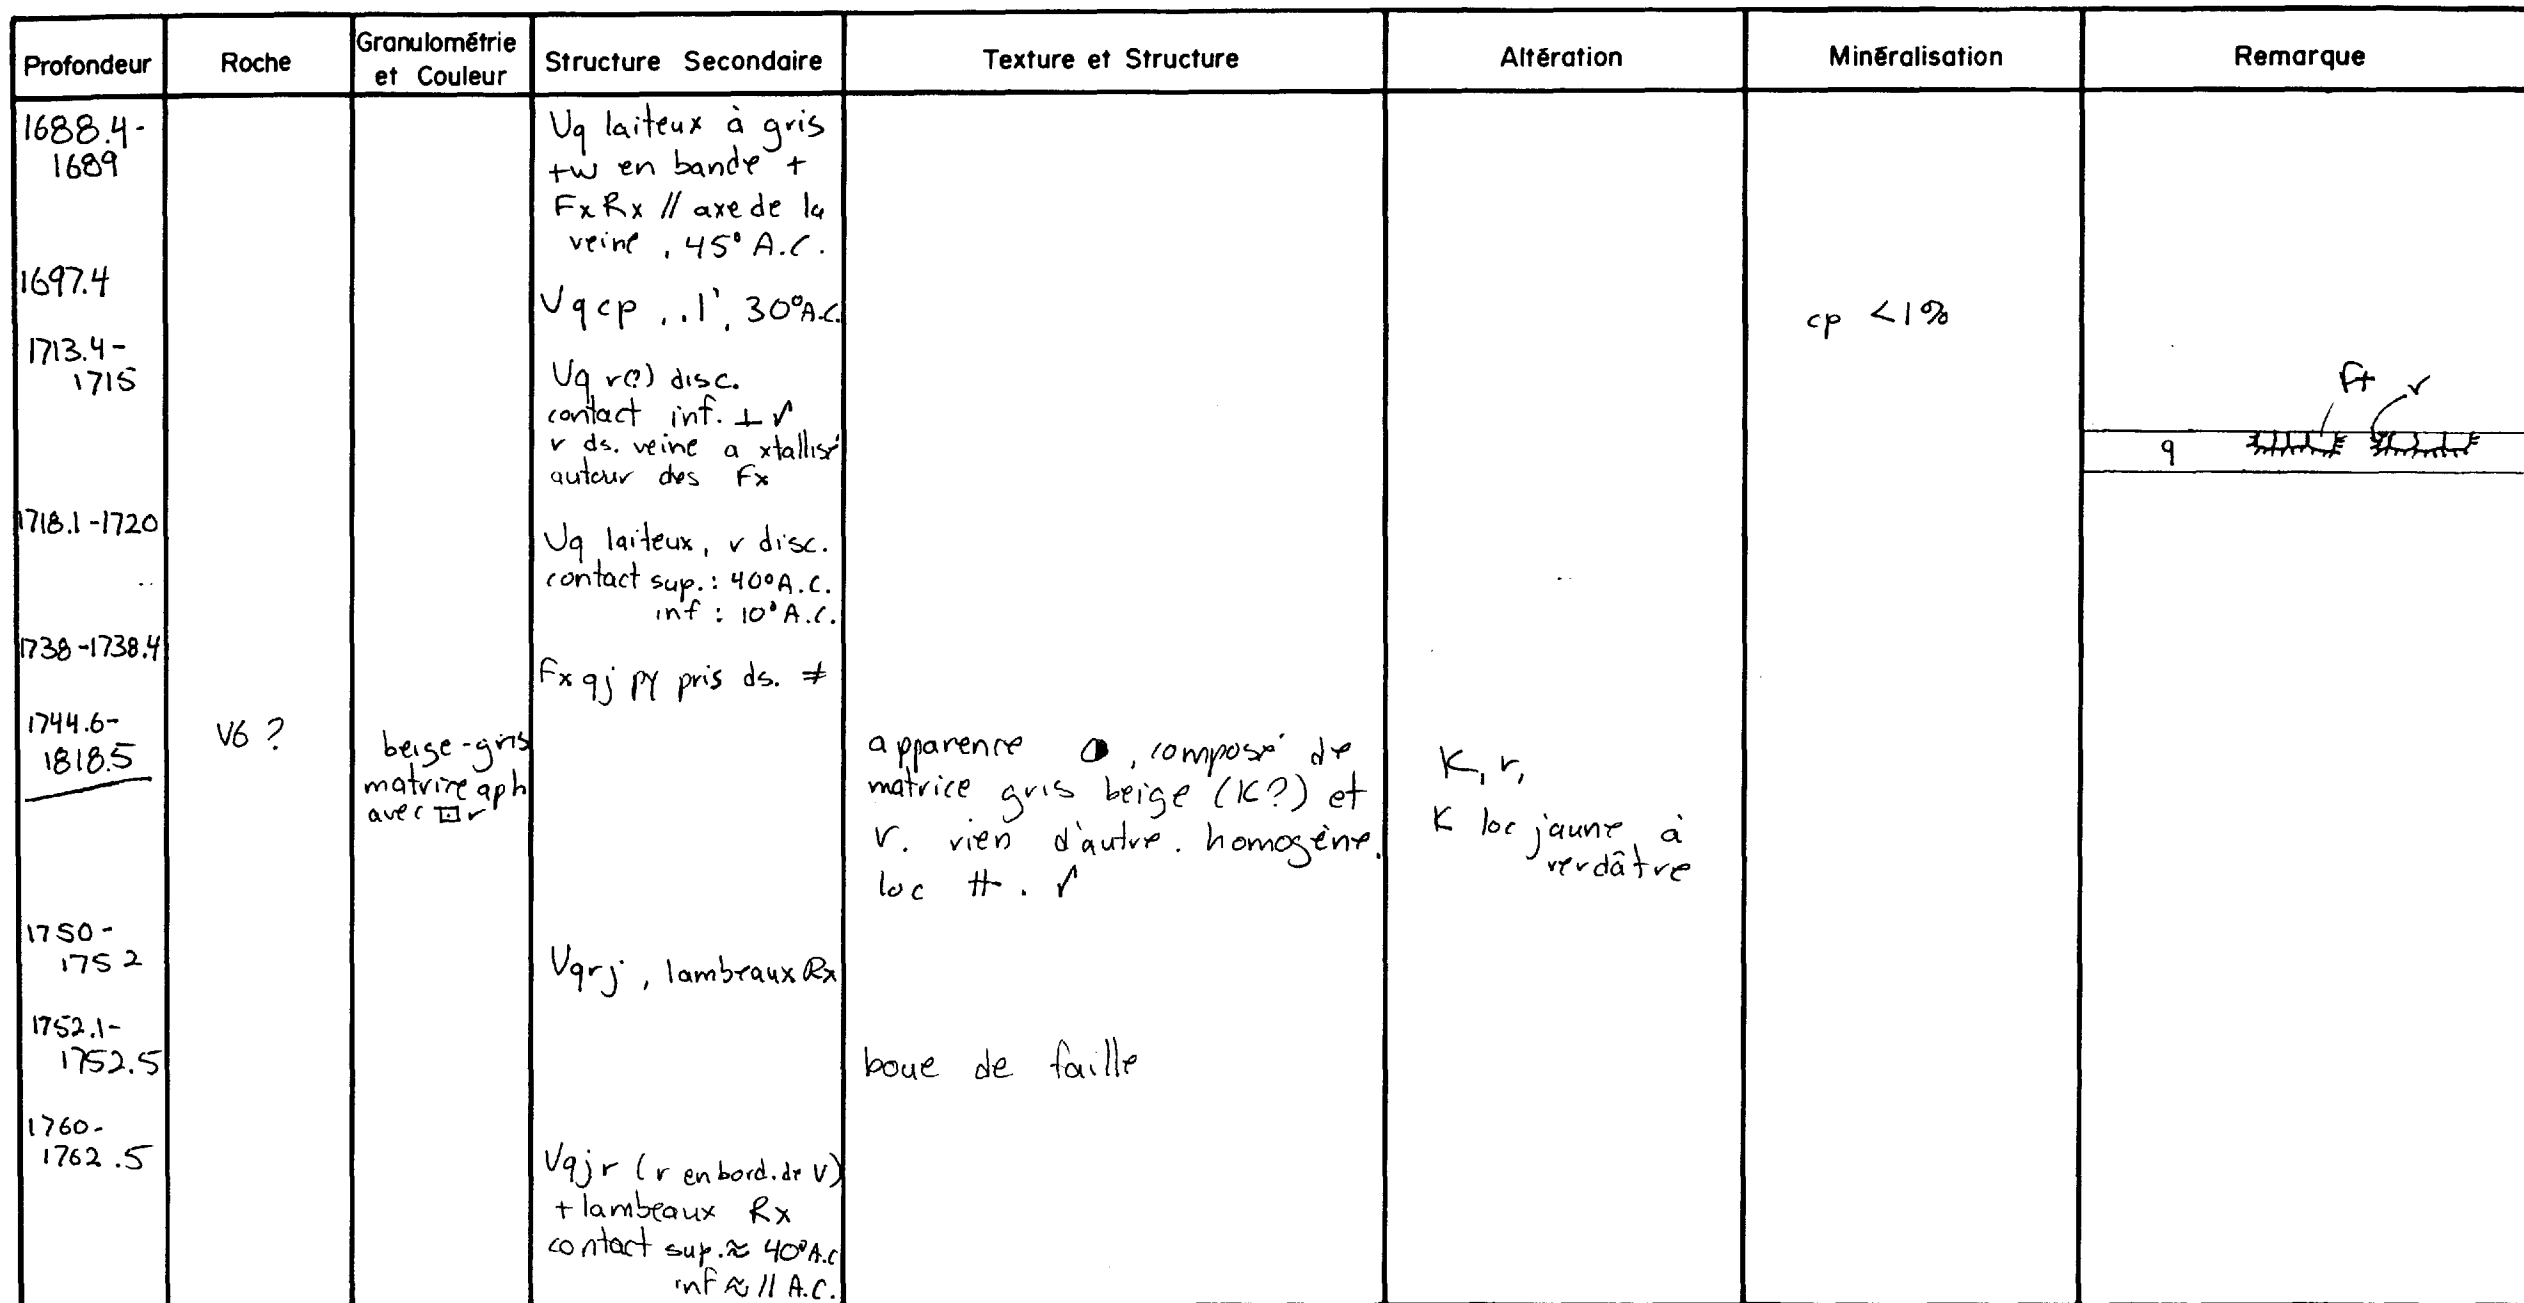 Profondeur Roche Granulométrie et Couleur Structure Secondaire Texture et Structure Altération Minéralisation Remarque
1688.4-
1689
Vq laiteux à gris
+w en bande +
Fx Rx // axe de la
veine, 45° A.C.
1697.4
Vq cp, .1', 30° A.C.
cp <1%
1713.4-
1715
Vq r(?) disc.
contact inf. ⊥
r ds. veine a xtallisé
autour des Fx
r
q
1718.1-1720
Vq laiteux, r disc.
contact sup.: 40° A.C.
inf : 10° A.C.
1738-1738.4
Fx qj py pris ds. ≠
1744.6-
1818.5
V6 ?
beige-gris
matrice aph
avec r
apparence , composé de
matrice gris beige (K?) et
r. rien d'autre. homogène.
loc #.
K, r,
K loc jaune à
verdâtre
1750-
1752
Vqrj, lambeaux Rx
1752.1-
1752.5
boue de faille
1760-
1762.5
Vqjr (r en bord. de V)
+ lambeaux Rx
contact sup. ≈ 40° A.C
inf ≈ // A.C.